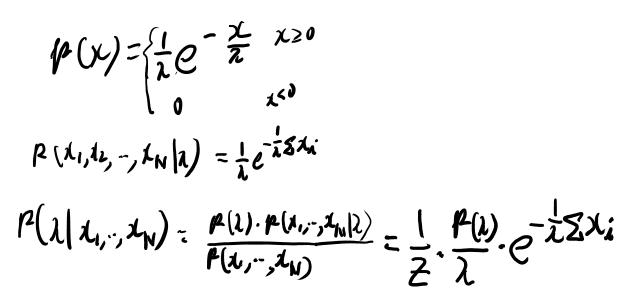 p(x) = { 1/λ e^{-x/λ} x≥0
0 x<0
P(x₁,x₂,..,x_N|λ) = 1/λ e^{-1/λ Σx_i}
P(λ|x₁,..,x_N) = P(λ)·P(x₁,..,x_N|λ) / P(x₁,..,x_N) = 1/Z · P(λ)/λ · e^{-1/λ Σx_i}